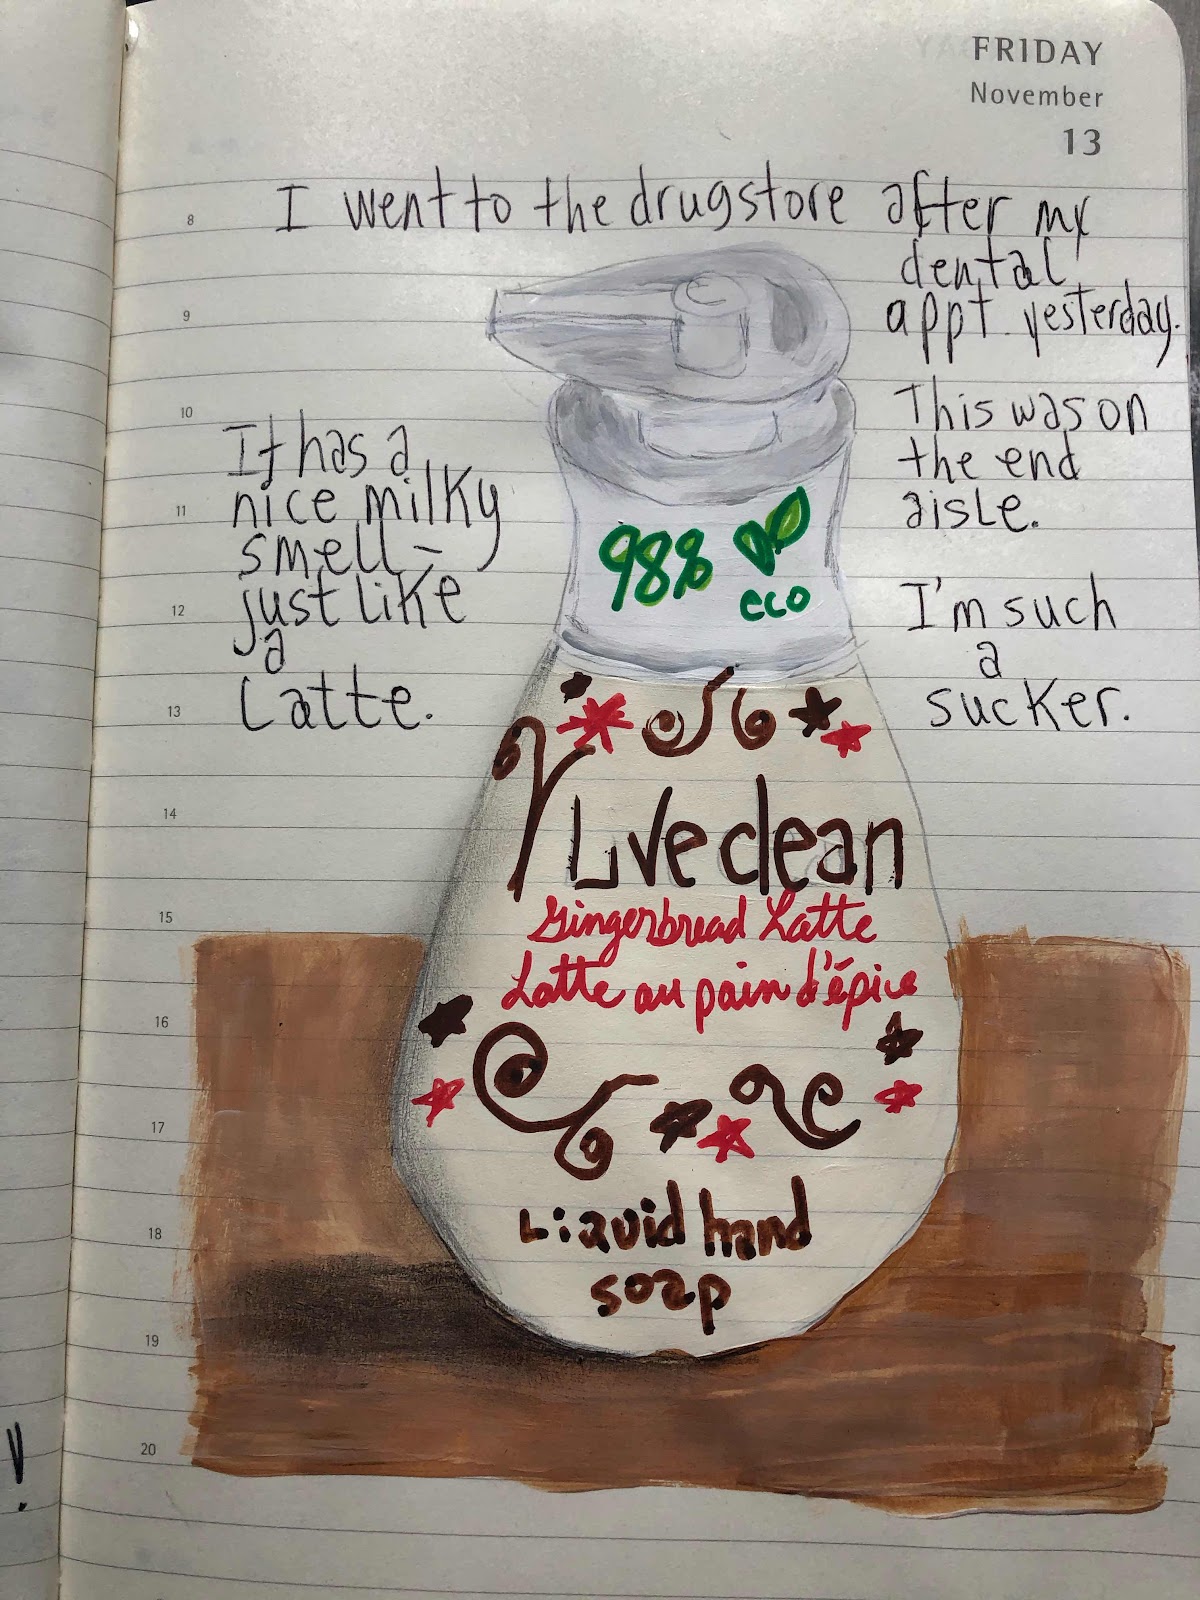 FRIDAY
November
13
8
I went to the drugstore after my
dental
appt. yesterday.
9
This was on
the end
aisle.
10
It has a
nice milky
smell -
just like
a
Latte.
11
I'm such
a
sucker.
12
13
98%
eco
14
Live clean
Gingerbread Latte
Latte au pain d'épice
15
16
17
Liquid hand
soap
18
19
20
!